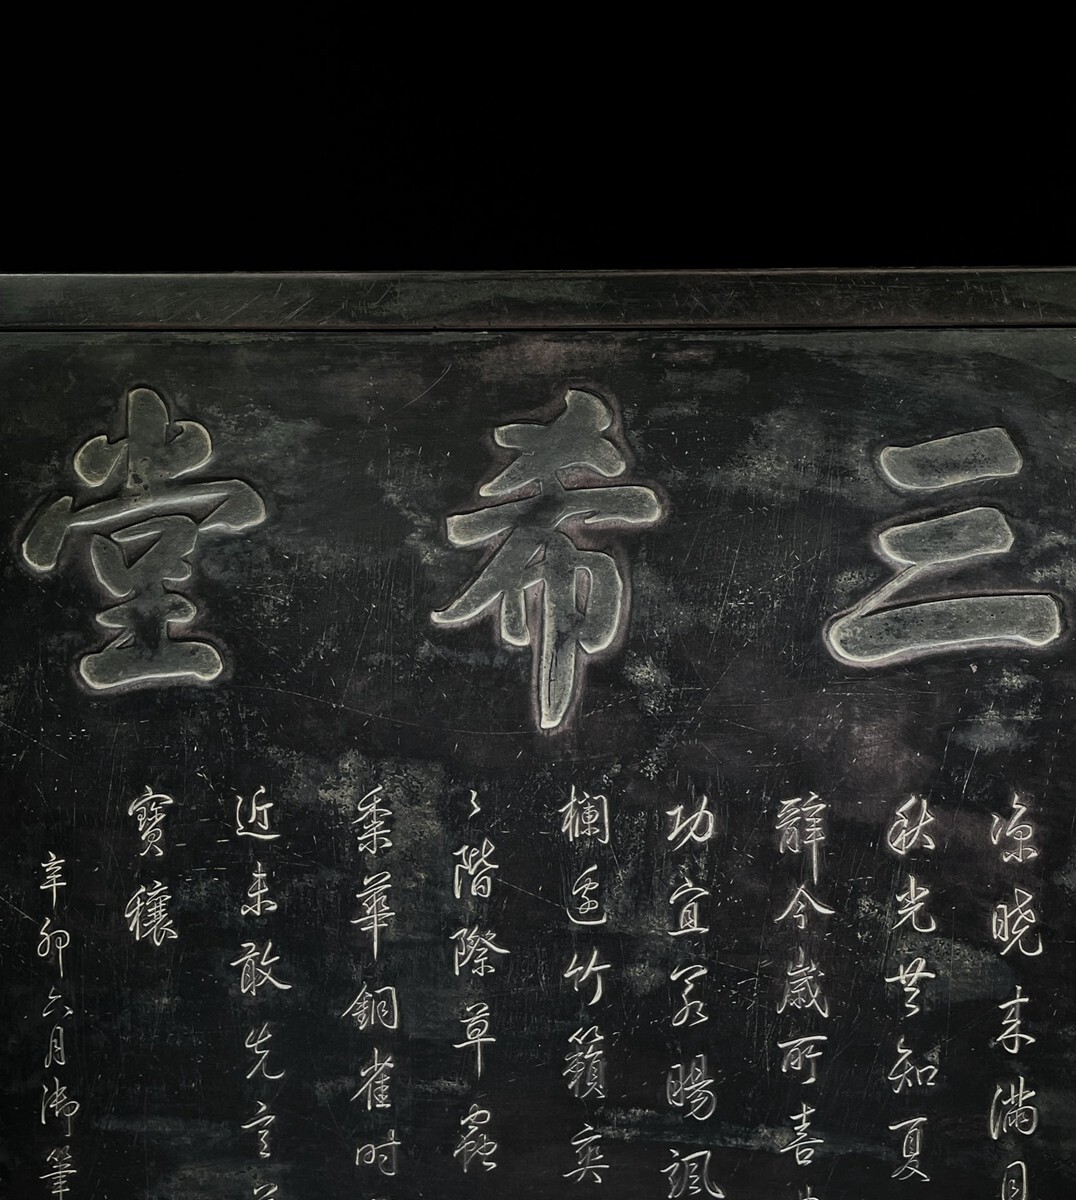 三希堂
涼曉来滿目
秋光共知夏
辭今歲所喜
功宜若暘
欄邊竹籟奕
階際草
黍華銅雀时
近未敢先言
寶穰
辛卯六月御筆